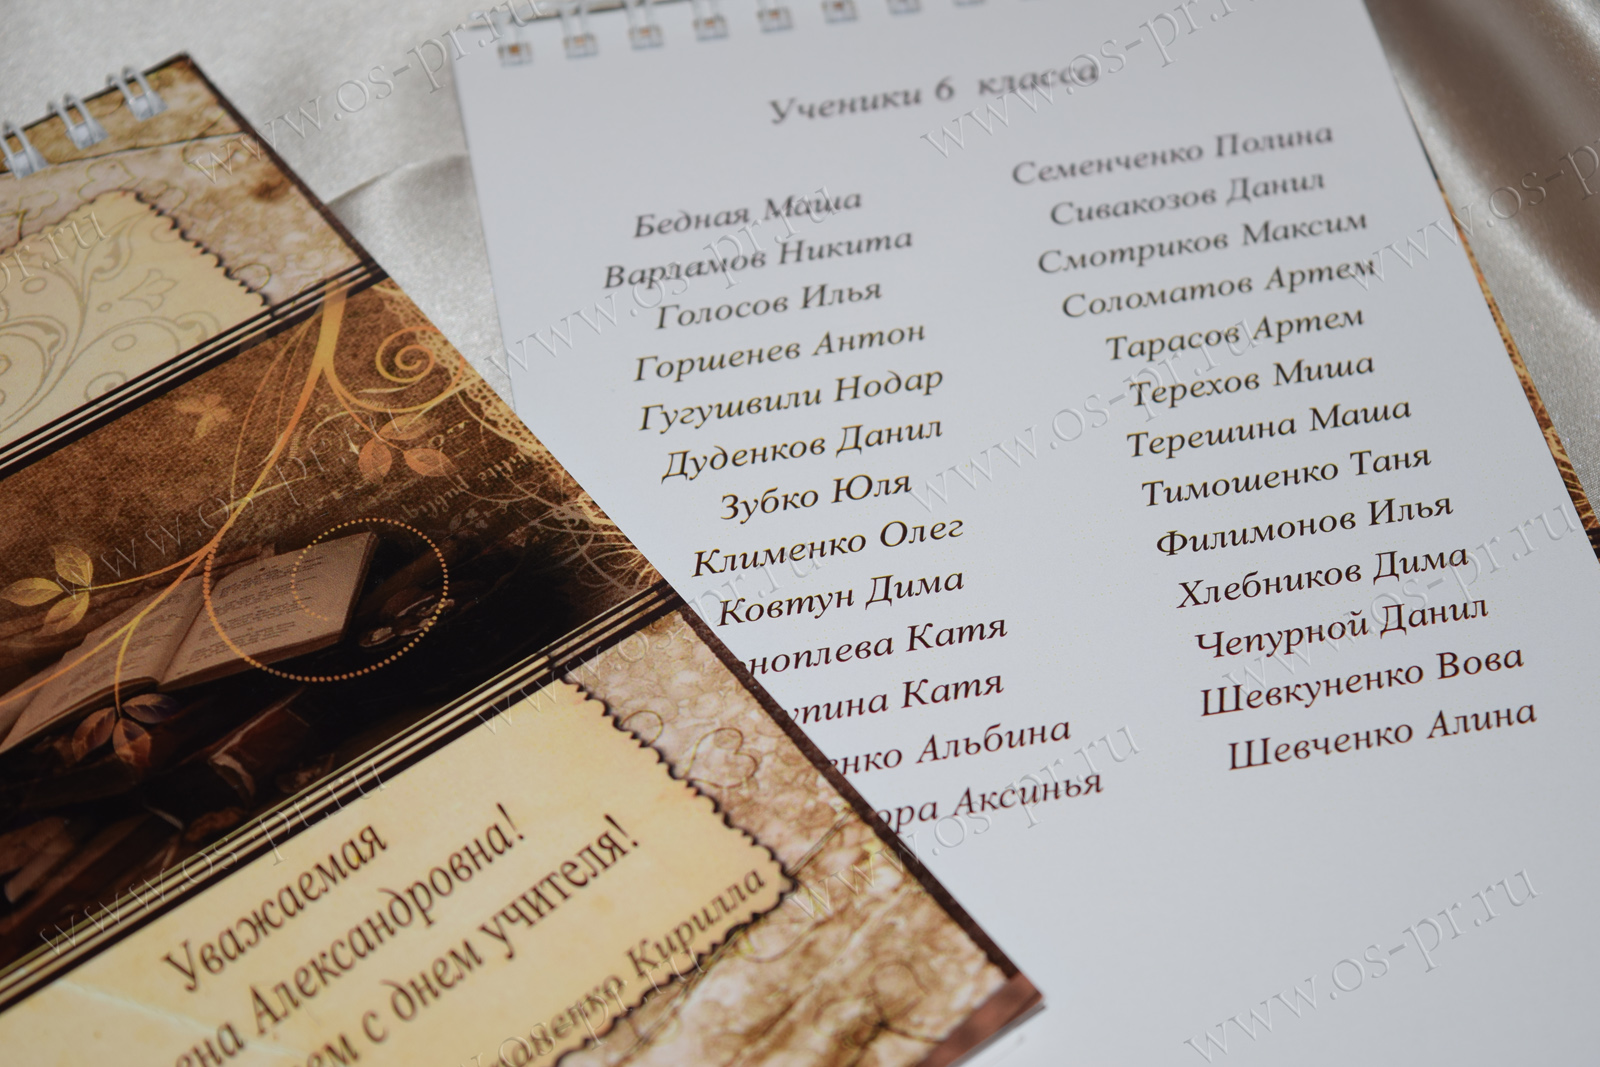 Ученики 6 класса
Бедная Маша
Варламов Никита
Голосов Илья
Горшенев Антон
Гугушвили Нодар
Дуденков Данил
Зубко Юля
Клименко Олег
Ковтун Дима
ноплева Катя
упина Катя
енко Альбина
ора Аксинья
Семенченко Полина
Сивакозов Данил
Смотриков Максим
Соломатов Артем
Тарасов Артем
Терехов Миша
Терешина Маша
Тимошенко Таня
Филимонов Илья
Хлебников Дима
Чепурной Данил
Шевкуненко Вова
Шевченко Алина
Уважаемая
ена Александровна!
ем с днем учителя!
аненко Кирилла
www.os-pr.ru